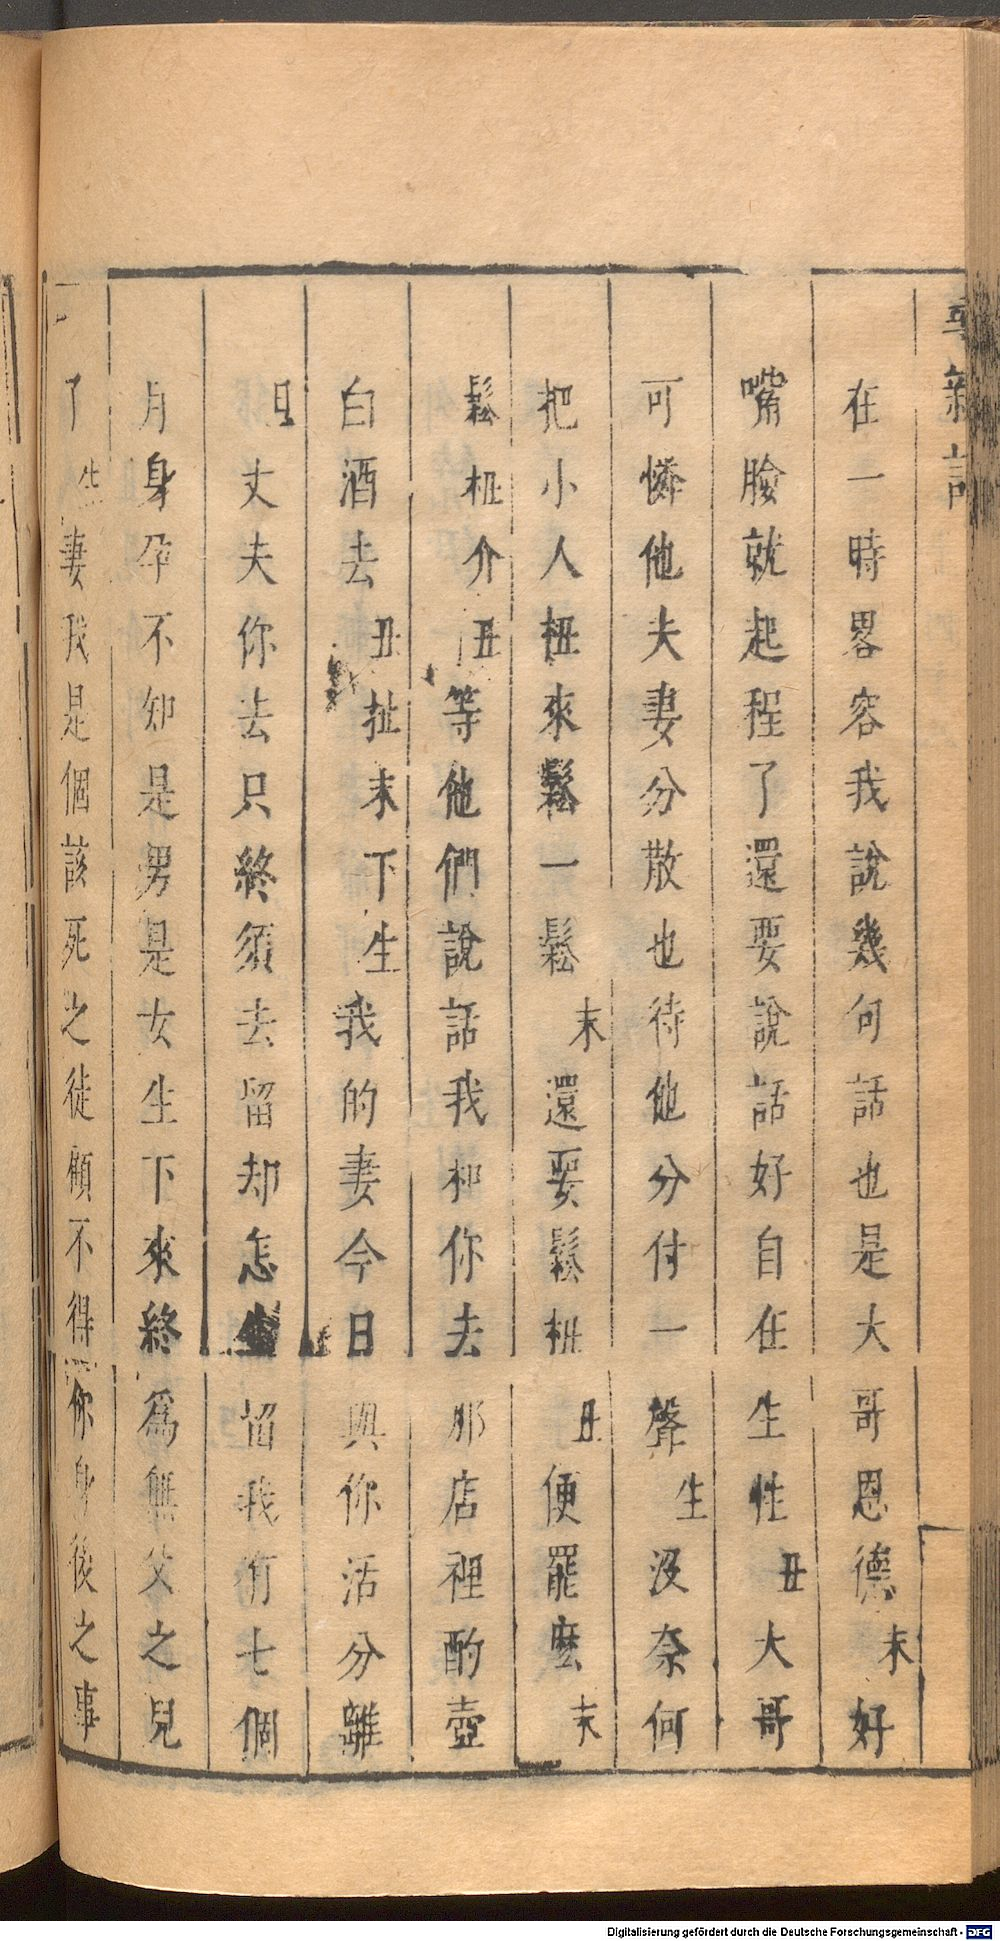 在一時畧容我說幾句話也是大哥恩德末好
嘴臉就起程了還要說話好自在生性丑大哥
可憐他夫妻分散也待他分付一聲生没奈何
把小人杻來鬆一鬆末還要鬆杻丑便罷麽末
鬆杻介丑等他們說話我和你去那店裡酌壺
白酒去丑扯末下生我的妻今日與你活分離
旦丈夫你去只終須去留却怎生留我有七個
月身孕不知是男是女生下來終爲無父之兒
了生妻我是個該死之徒顧不得你身後之事
Digitalisierung gefördert durch die Deutsche Forschungsgemeinschaft - DFG